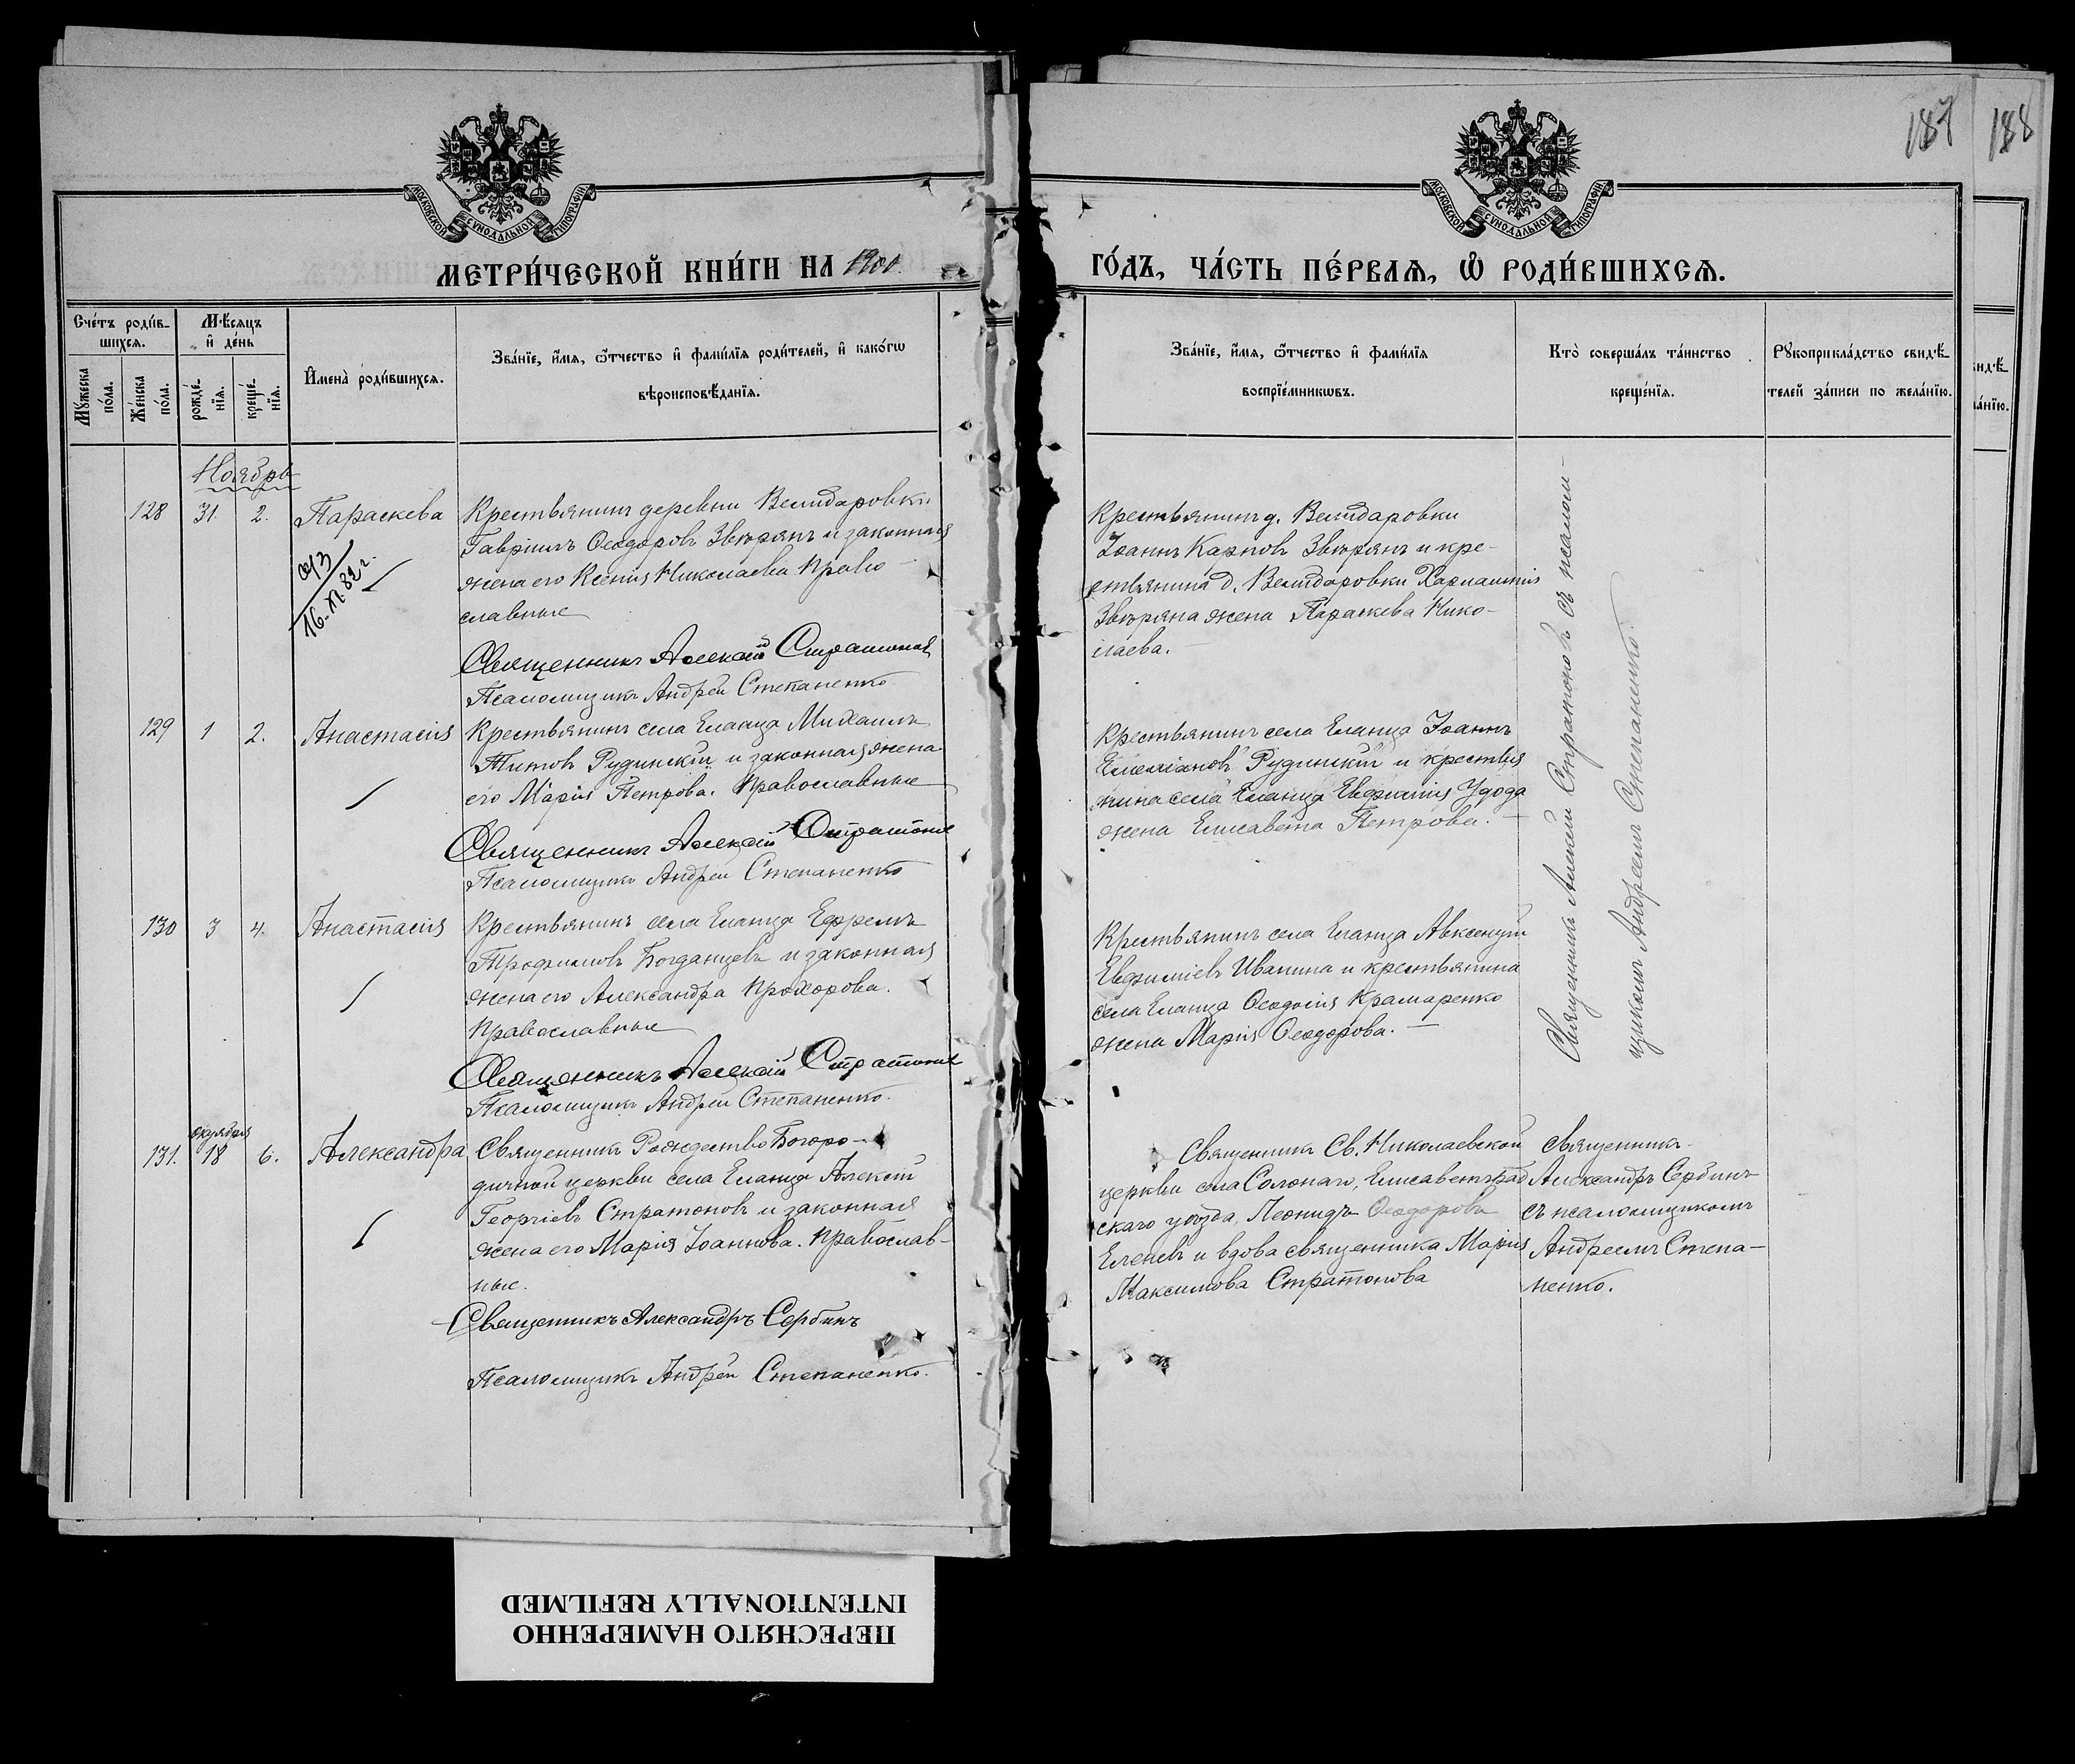 187
188
МОСКОВСКОЙ СѴНОДАЛЬНОЙ ТИПОГРАФІИ
МОСКОВСКОЙ СѴНОДАЛЬНОЙ ТИПОГРАФІИ
МЕТРИ́ЧЕСКОЙ КНИ́ГИ НА 1900
ГО́ДЪ, ЧА́СТЬ ПЕ́РВАѦ, Ѡ҆ РОДИ́ВШИХСѦ.
Сче́тъ роди́в-
шихсѧ.
Мѣ́сѧцъ
и҆ де́нь
Му́жеска
по́ла.
Же́нска
по́ла.
рожде́-
нїѧ.
креще́-
нїѧ.
И҆мена̀ роди́вшихсѧ.
Зва́нїе, и҆́мѧ, ѻ҆́тчество и҆ фами́лїѧ роди́телей, и҆ како́гѡ
вѣроисповѣ́данїѧ.
Зва́нїе, и҆́мѧ, ѻ҆́тчество и҆ фами́лїѧ
воспрїе́мникѡвъ.
Кто̀ соверша́лъ та́инство
креще́нїѧ.
Рꙋкоприкла́дство свидѣ́-
телей за́писи по жела́нїю.
Ноябрь
128 31. 2. Параскева
16.XI.82 г.
Крестьянинъ деревни Велидаровки
Гавріилъ Ѳеодоровъ Звѣрянъ и законная
жена его Ксенія Николаева Право-
славные
Священникъ Алексій Стратоновъ
Псаломщикъ Андрей Степаненко
Крестьянинъ д. Велидаровки
Іоаннъ Карповъ Звѣрянъ и кре-
стьянина д. Велидаровки Харлампія
Звѣряна жена Параскева Нико-
лаева.
Священникъ Алексій Стратоновъ съ псалом-
щикомъ Андреемъ Степаненко.
129 1 2. Анастасія
Крестьянинъ села Еланца Михаилъ
Титовъ Рудинскій и законная жена
его Марія Петрова. Православные
Священникъ Алексій Стратоновъ
Псаломщикъ Андрей Степаненко
Крестьянинъ села Еланца Іоаннъ
Емеліановъ Рудинскій и крестья
нина села Еланца Евфимія Удода
жена Елисавета Петрова. —
130 3 4. Анастасія
Крестьянинъ села Еланца Ефремъ
Трофимовъ Богданцевъ и законная
жена его Александра Прохорова.
Православные
Священникъ Алексій Стратоновъ
Псаломщикъ Андрей Степаненко.
Крестьянинъ села Еланца Авксентій
Евфиміевъ Иванина и крестьянина
села Еланца Ѳеодосія Крамаренко
жена Марія Ѳеодорова. —
октября
131. 18 6. Александра
Священникъ Рождество Богоро-
дичной церкви села Еланца Алексій
Георгіевъ Стратоновъ и законная
жена его Марія Іоаннова. Православ-
ные.
Священникъ Александръ Сербинъ
Псаломщикъ Андрей Степаненко.
Священникъ Св. Николаевской
церкви села Солонаго, Елисаветград
скаго уѣзда, Леонидъ Ѳеодоровъ
Еленевъ и вдова священника Марія
Максимова Стратонова
Священникъ
Александръ Сербинъ
съ псаломщикомъ
Андреемъ Степа-
ненко.
ПЕРЕСНЯТО НАМЕРЕННО
INTENTIONALLY REFILMED